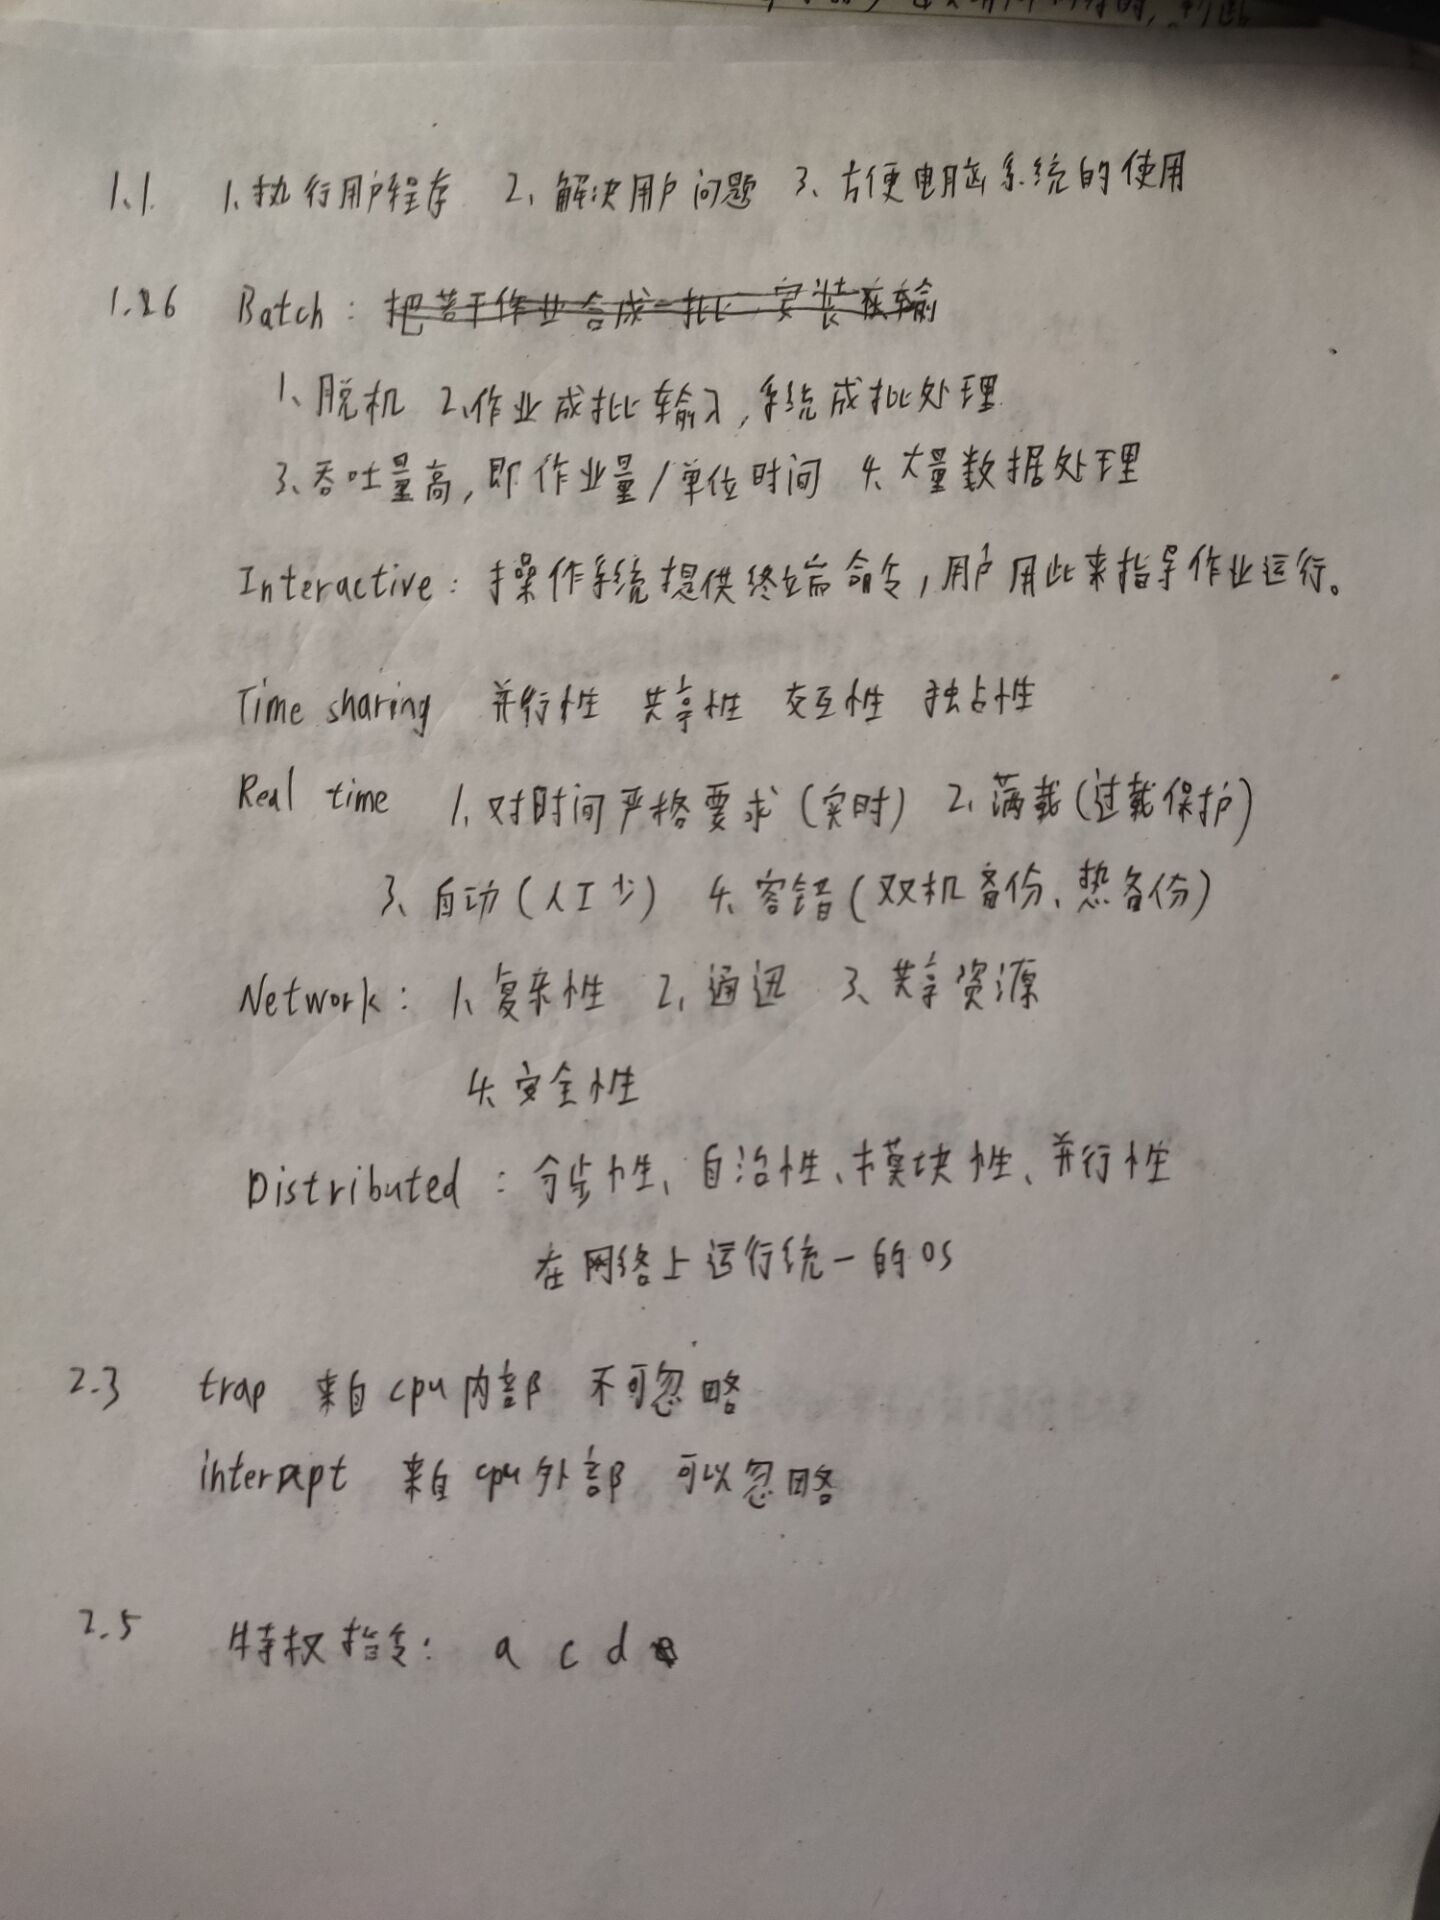 1.1. 1、执行用户程序 2、解决用户问题 3、方便电脑系统的使用
1.26 Batch: 把若干作业合成一批 安装 输
1、脱机 2、作业成批输入,系统成批处理
3、吞吐量高,即作业量/单位时间 4、大量数据处理
Interactive: 操作系统提供终端命令,用户用此来指导作业运行。
Time sharing 并行性 共享性 交互性 独占性
Real time 1、对时间严格要求(实时) 2、满载(过载保护)
3、自动(人工少) 4、容错(双机备份、热备份)
Network: 1、复杂性 2、通迅 3、共享资源
4、安全性
Distributed: 分步性、自治性、模块性、并行性
在网络上运行统一的OS
2.3 trap 来自cpu内部 不可忽略
interept 来自cpu外部 可以忽略
2.5 特权指令: a c d